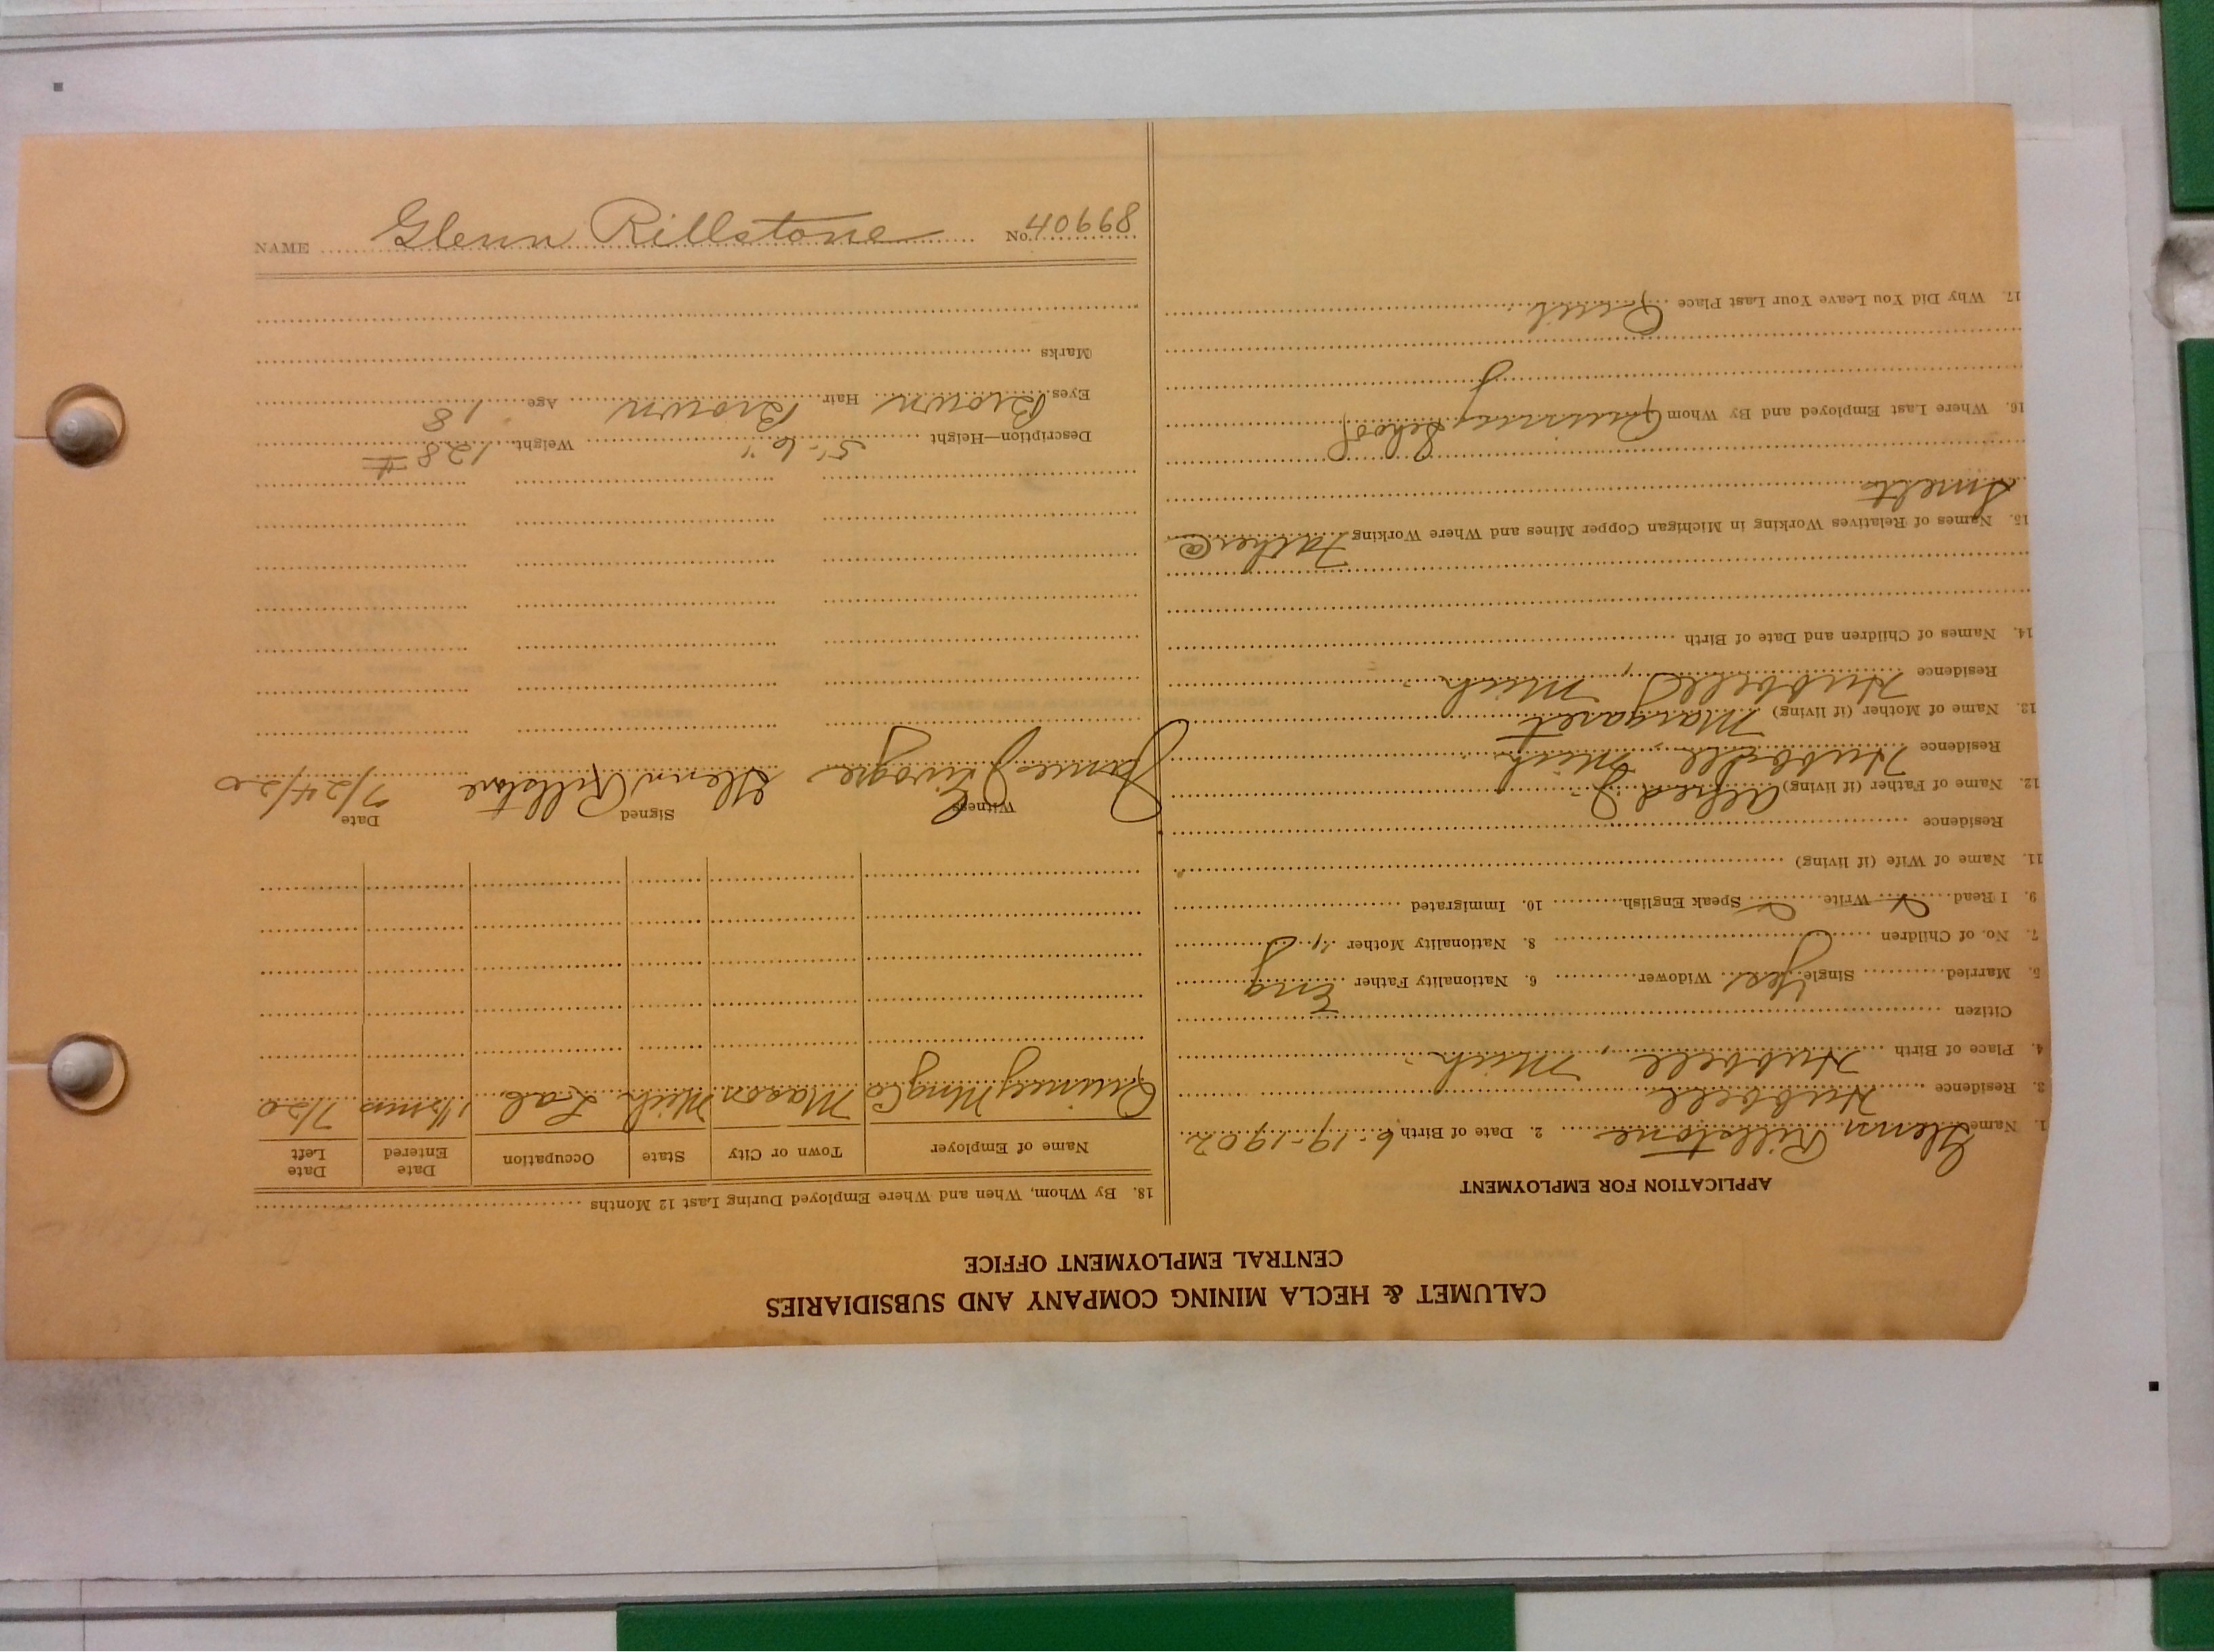 CALUMET & HECLA MINING COMPANY AND SUBSIDIARIES
CENTRAL EMPLOYMENT OFFICE
APPLICATION FOR EMPLOYMENT
1. Name Glenn Rillstone 2. Date of Birth 6-19-1902
3. Residence Hubbell
4. Place of Birth Hubbell, Mich
Citizen
5. Married Single Yes Widower 6. Nationality Father Eng
7. No. of Children 8. Nationality Mother "
9. I Read Write Speak English 10. Immigrated
11. Name of Wife (if living)
Residence
12. Name of Father (if living) Alfred J
Residence Hubbell, Mich
13. Name of Mother (if living) Margaret
Residence Hubbell, Mich
14. Names of Children and Date of Birth
15. Names of Relatives Working in Michigan Copper Mines and Where Working Father @
Smelt
16. Where Last Employed and By Whom Quincy
17. Why Did You Leave Your Last Place Quit
18. By Whom, When and Where Employed During Last 12 Months
Name of Employer Town or City State Occupation Date Entered Date Left
Quincy Mng Co Mason Mich Lab. 7/20
Witness Signed Date
James Glenn Rillstone 7/24/20
Description—Height 5'-6" Weight 128 #
Eyes Brown Hair Brown Age 18
Marks
NAME Glenn Rillstone No. 40668